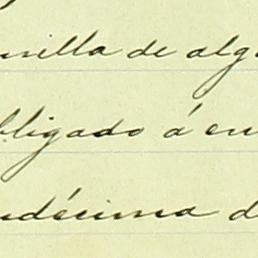 milla de alg
bligado á en
ndécima d